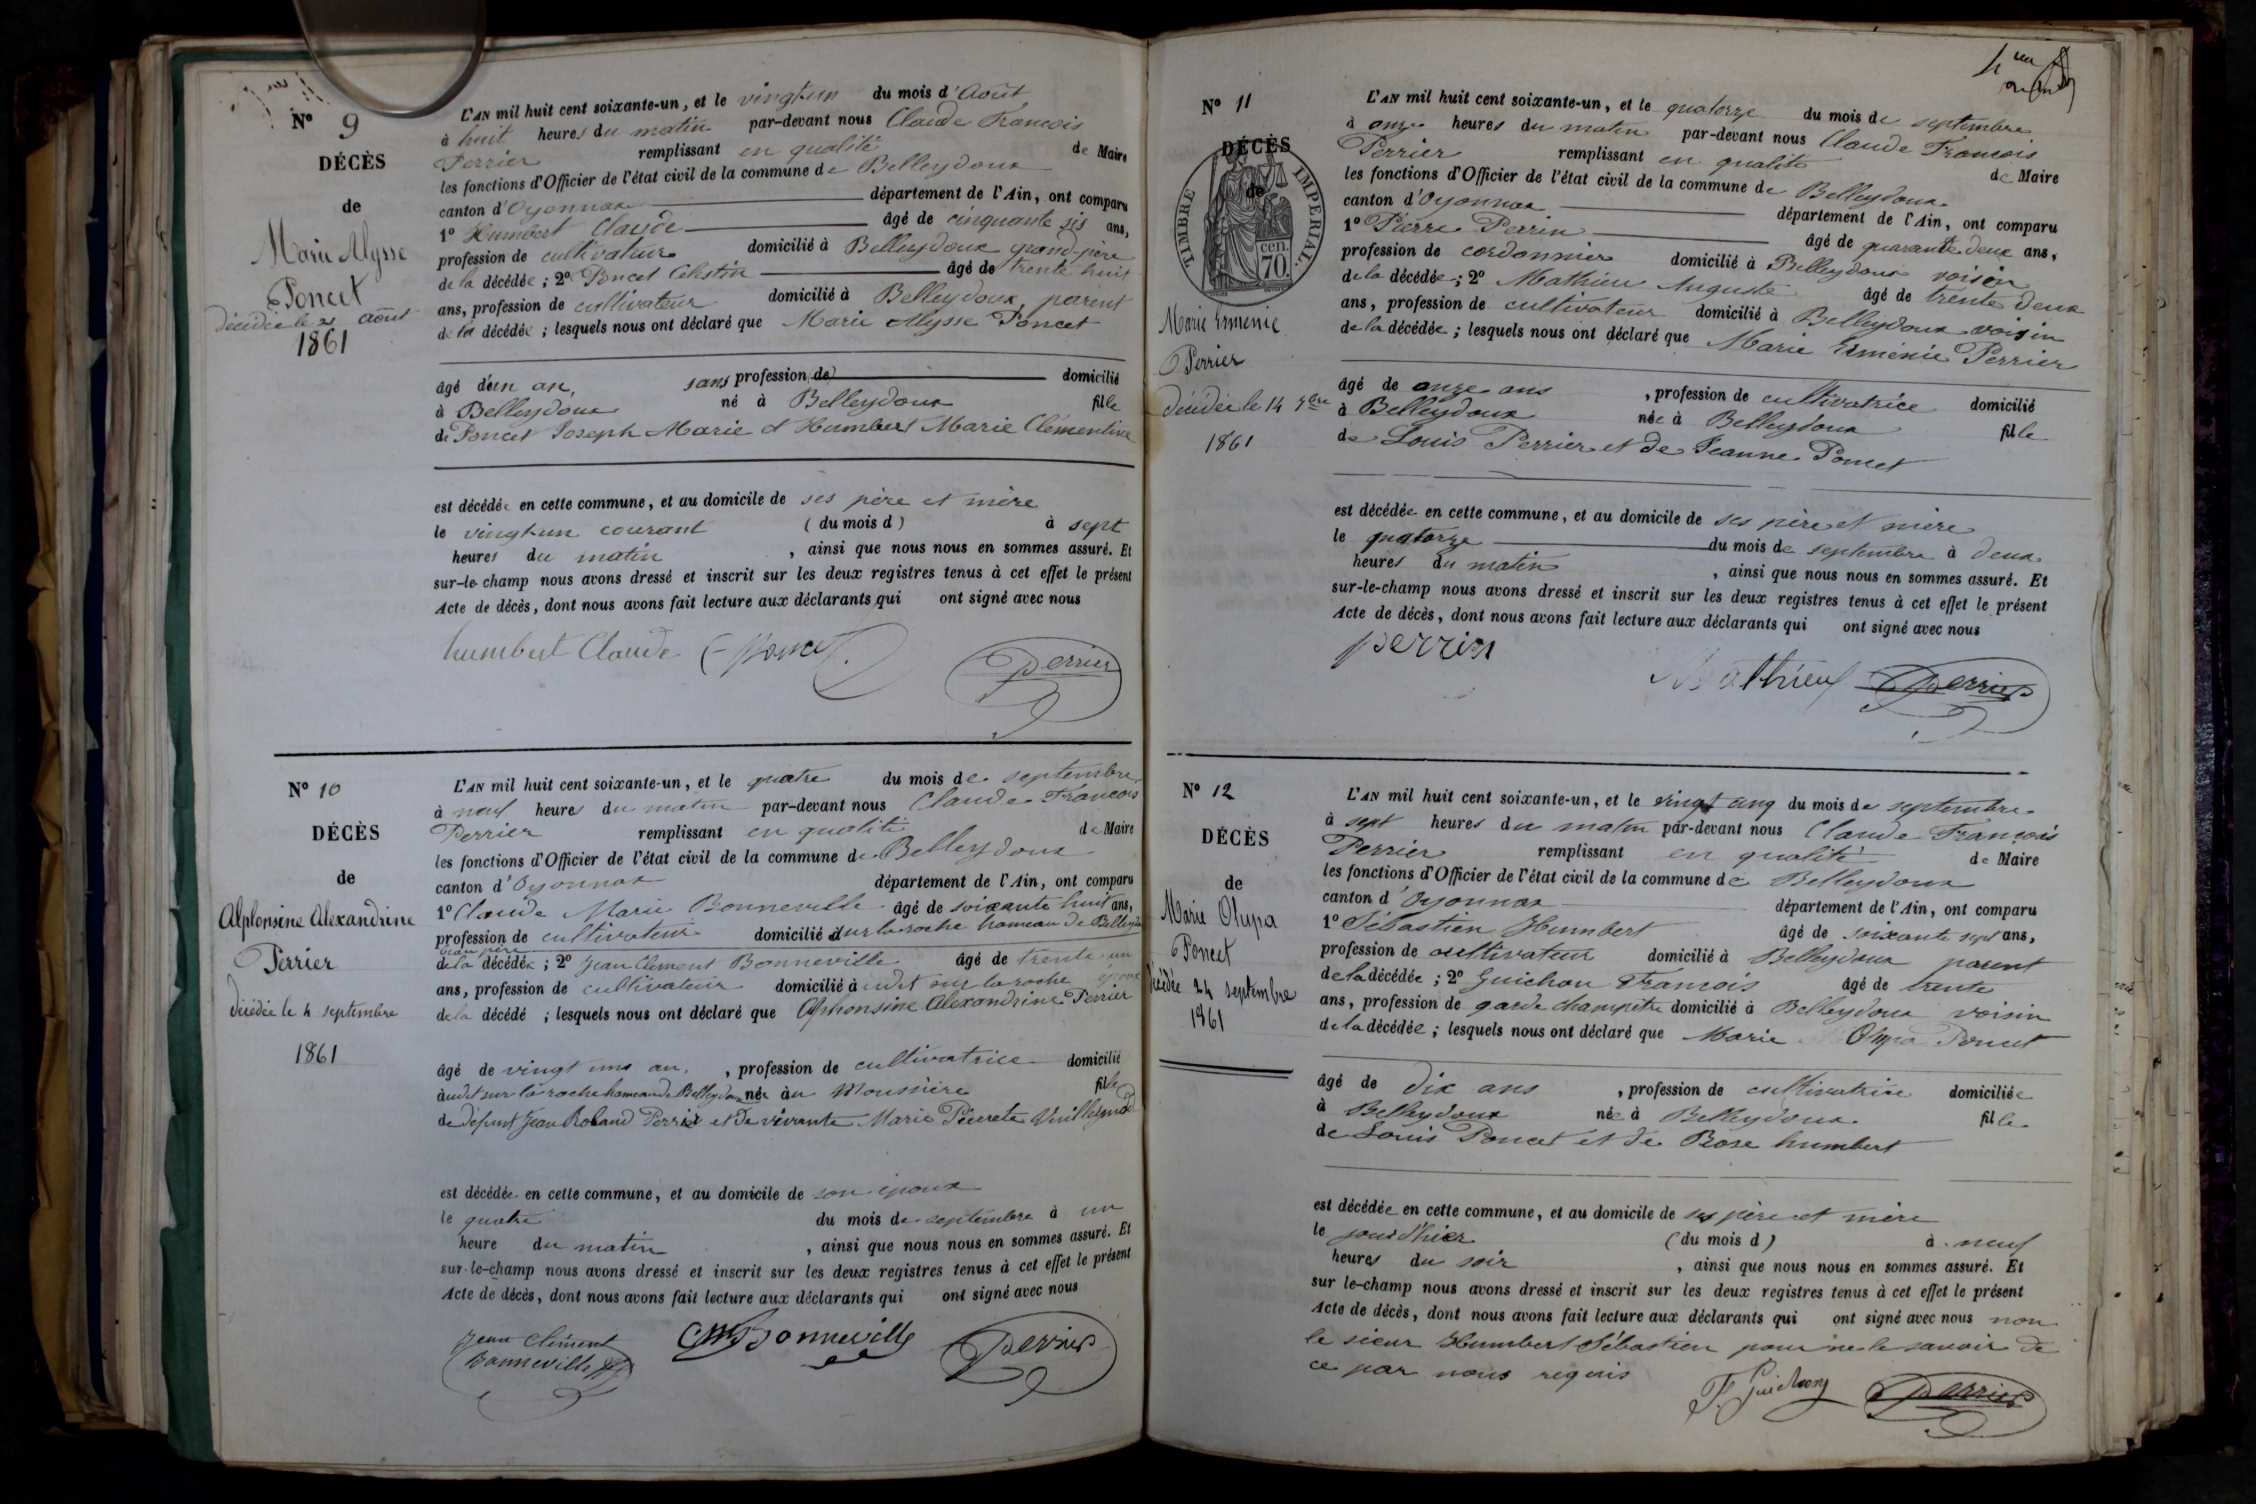 N° 9
DÉCÈS
de
Marie Alysse
Poncet
décédée le 21 août
1861
L'AN mil huit cent soixante-un, et le vingt-un du mois d'Août
à huit heures du matin par-devant nous Claude François
Perrier remplissant en qualité de Maire
les fonctions d'Officier de l'état civil de la commune de Belleydoux
canton d'Oyonnax département de l'Ain, ont comparu
1° Humbert Claude âgé de cinquante six ans,
profession de cultivateur domicilié à Belleydoux grand-père
de la décédée ; 2° Poncet Célestin âgé de trente huit
ans, profession de cultivateur domicilié à Belleydoux, parent
de la décédée ; lesquels nous ont déclaré que Marie Alysse Poncet
âgé d'un an, sans profession de domicilié
à Belleydoux né à Belleydoux fille
de Poncet Joseph Marie et Humbert Marie Clémentine
est décédée en cette commune, et au domicile de ses père et mère
le vingt-un courant ( du mois d ) à sept
heures du matin , ainsi que nous nous en sommes assuré. Et
sur-le-champ nous avons dressé et inscrit sur les deux registres tenus à cet effet le présent
Acte de décès, dont nous avons fait lecture aux déclarants qui ont signé avec nous
humbert Claude C poncet Perrier
N° 10
DÉCÈS
de
Alphonsine Alexandrine
Perrier
décédée le 4 septembre
1861
L'AN mil huit cent soixante-un, et le quatre du mois de septembre
à neuf heures du matin par-devant nous Claude François
Perrier remplissant en qualité de Maire
les fonctions d'Officier de l'état civil de la commune de Belleydoux
canton d'Oyonnax département de l'Ain, ont comparu
1° Claude Marie Bonneville âgé de soixante huit ans,
profession de cultivateur domicilié sur la roche hameau de Belleydoux
beau père
de la décédée ; 2° Jean Clément Bonneville âgé de trente un
ans, profession de cultivateur domicilié à udit sur la roche époux
de la décédé ; lesquels nous ont déclaré que Alphonsine Alexandrine Perrier
âgé de vingt uns an, , profession de cultivatrice domicilié
audit sur la roche hameau de Belleydoux née àu Moussière fille
de défunt Jean Roland Perrier et de vivante Marie Pierrete Vuillermoz
est décédée en cette commune, et au domicile de son époux
le quatre du mois de septembre à un
heure du matin , ainsi que nous nous en sommes assuré. Et
sur-le-champ nous avons dressé et inscrit sur les deux registres tenus à cet effet le présent
Acte de décès, dont nous avons fait lecture aux déclarants qui ont signé avec nous
Jean Clément
Bonneville CM Bonneville Perrier
N° 11
DÉCÈS
de
TIMBRE IMPERIAL.
cen.
70.
Marie Erménie
Perrier
décédée le 14 7bre
1861
L'AN mil huit cent soixante-un, et le quatorze du mois de septembre
à onze heures du matin par-devant nous Claude François
Perrier remplissant en qualité de Maire
les fonctions d'Officier de l'état civil de la commune de Belleydoux
canton d'Oyonnax département de l'Ain, ont comparu
1° Pierre Perrin âgé de quarante deux ans,
profession de cordonnier domicilié à Belleydoux voisin
de la décédée ; 2° Mathieu Auguste âgé de trente deux
ans, profession de cultivateur domicilié à Belleydoux voisin
de la décédée ; lesquels nous ont déclaré que Marie Erménie Perrier
âgé de onze ans , profession de cultivatrice domicilié
à Belleydoux née à Belleydoux fille
de Louis Perrier et de Jeanne Poncet
est décédée en cette commune, et au domicile de ses père et mère
le quatorze du mois de septembre à deux
heures du matin , ainsi que nous nous en sommes assuré. Et
sur-le-champ nous avons dressé et inscrit sur les deux registres tenus à cet effet le présent
Acte de décès, dont nous avons fait lecture aux déclarants qui ont signé avec nous
perrin
Mathieu Perrier
N° 12
DÉCÈS
de
Marie Olupa
Poncet
décédée 24 septembre
1861
L'AN mil huit cent soixante-un, et le vingt cinq du mois de septembre
à sept heures du matin par-devant nous Claude François
Perrier remplissant en qualité de Maire
les fonctions d'Officier de l'état civil de la commune de Belleydoux
canton d'Oyonnax département de l'Ain, ont comparu
1° Sébastien Humbert âgé de soixante sept ans,
profession de cultivateur domicilié à Belleydoux parent
de la décédée ; 2° Guichon François âgé de trente
ans, profession de garde champêtre domicilié à Belleydoux voisin
de la décédée ; lesquels nous ont déclaré que Marie Olupa Poncet
âgé de dix ans , profession de cultivatrice domiciliée
à Belleydoux née à Belleydoux fille
de Louis Poncet et de Rose humbert
est décédée en cette commune, et au domicile de ses père et mère
le jour d'hier ( du mois d ) à neuf
heures du soir , ainsi que nous nous en sommes assuré. Et
sur le-champ nous avons dressé et inscrit sur les deux registres tenus à cet effet le présent
Acte de décès, dont nous avons fait lecture aux déclarants qui ont signé avec nous non
le sieur Humbert Sébastien pour ne le savoir de
ce par nous requis
F. Guichon Perrier